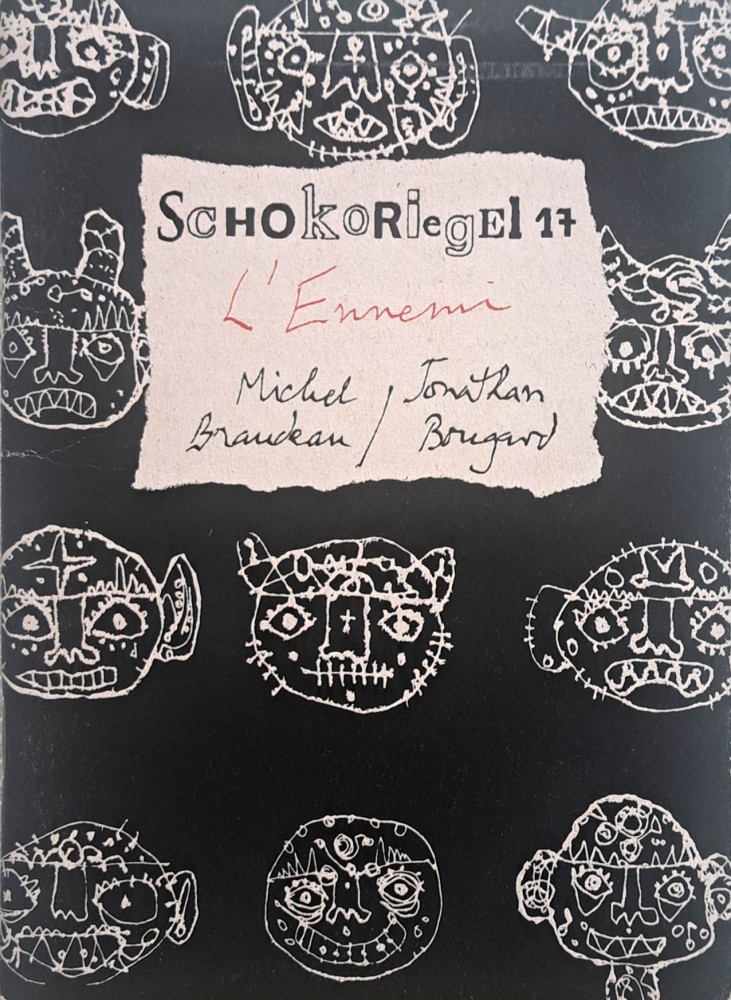 SCHOKORiegEl 17
L'Ennemi
Michel / Jonathan
Braudeau / Bougard